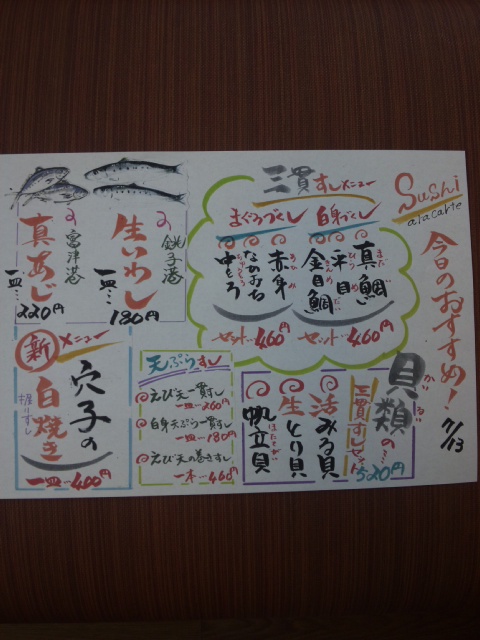 Sushi
a la carte
今日のおすすめ!
7/13
三貫すしメニュー
白身づくし
真鯛
まだい
平目
ひらめ
金目鯛
きんめだい
セット…460円
まぐろづくし
赤身
あかみ
なかおち
中とろ
ちゅうとろ
セット…460円
貝類の…
かいるい
三貫すしセット
520円
活みる貝
生とり貝
帆立貝
ほたてがい
天ぷらすし
えび天一貫すし
一皿…260円
白身天ぷら一貫すし
一皿…180円
えび天の巻きすし
一本…460円
銚子港の
生いわし
一皿…180円
富津港の
真あじ
一皿…220円
新メニュー
穴子の
白焼き
握りすし
一皿…400円